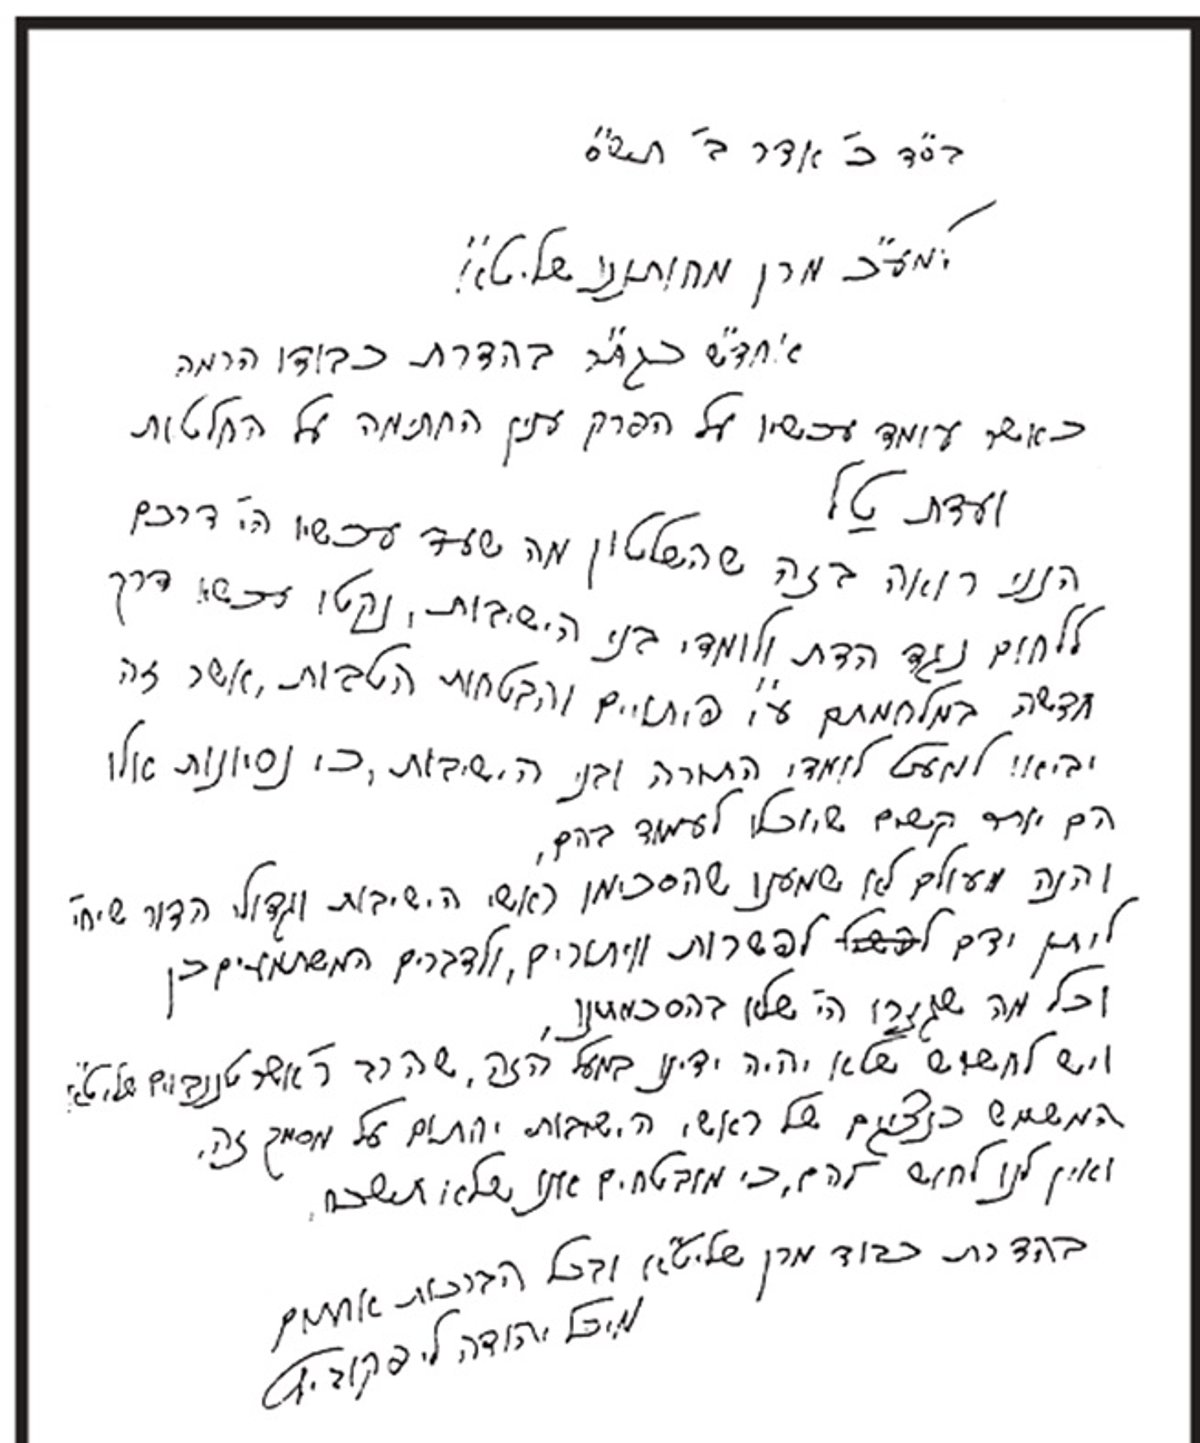 בס"ד כ' אדר ב' תש"ס
למע"כ מרן מחותננו שליט"א!
אחדש"ה כגה"ר בהדרת כבודו הרמה
כאשר עומד עכשיו על הפרק ענין החתימה על החלטות
ועדת טל
הנני רואה בזה שהשלטון מה שעד עכשיו הי' דרכם
ללחום נגד הדת ולומדי בני הישיבות, נקטו עכשיו דרך
חדשה במלחמתם ע"י פיתויים והבטחות הטבות, אשר זה
יביאו למעט לומדי התורה ובני הישיבות, כי נסיונות אלו
הם יותר קשים שיוכלו לעמוד בהם,
והנה מעולם לא שמענו שהסכימו ראשי הישיבות וגדולי הדור שיחי'
ליתן ידים לפשרות וויתורים, ולדברים המשתמעים כן
וכל מה שגזרו הי' שלא בהסכמתנו,
ויש לחשוש שלא יהיה ידינו במעל הזה, שהרב ר' אשר טננבוים שליט"א
המשמש כנציגם של ראשי הישיבות יחתום על מסמך זה.
ואין לנו לחוש להם, כי מובטחים אנו שלא תשכח.
בהדרת כבוד מרן שליט"א ובכל הברכות
מיכל יהודה ליפקוביץ